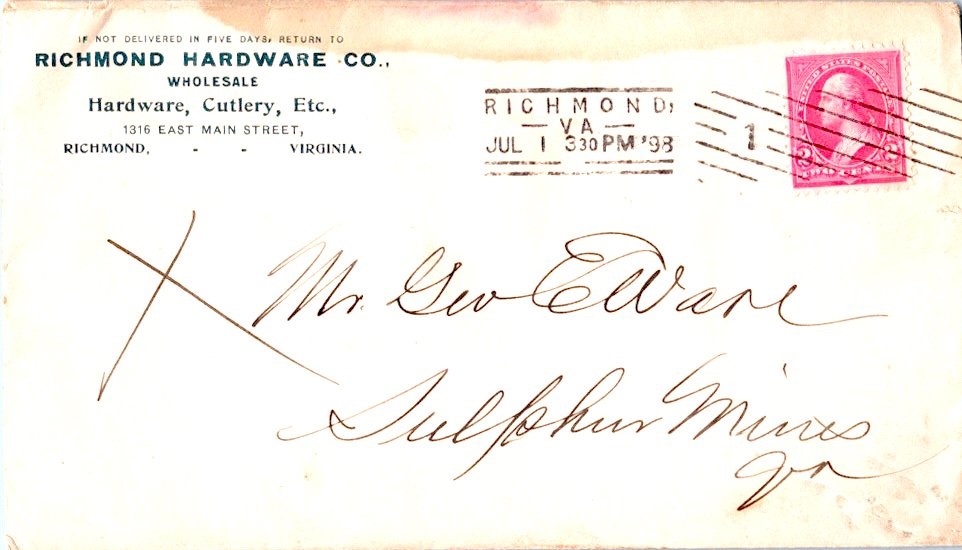 IF NOT DELIVERED IN FIVE DAYS, RETURN TO
RICHMOND HARDWARE CO.,
WHOLESALE
Hardware, Cutlery, Etc.,
1316 EAST MAIN STREET,
RICHMOND, - - VIRGINIA.
RICHMOND,
— VA —
JUL 1 330 PM '98
1
UNITED STATES POSTAGE
2 2
TWO CENTS
Mr. Geo E Ware
Sulphur Mines
Va